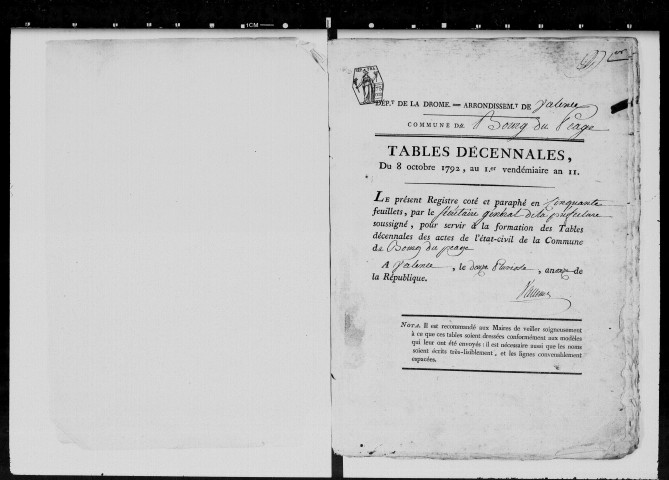 DÉP.T DE LA DROME. — ARRONDISSEM.T DE Valence
COMMUNE DE Bourg du Péage
TABLES DÉCENNALES,
Du 8 octobre 1792, au 1.er vendémiaire an 11.
LE présent Registre coté et paraphé en Cinquante
feuillets, par le Secrétaire général de la préfecture
soussigné, pour servir à la formation des Tables
décennales des actes de l'état-civil de la Commune
de Bourg du péage
A Valence, le douze Pluviose, an onze de
la République.
NOTA. Il est recommandé aux Maires de veiller soigneusement
à ce que ces tables soient dressées conformément aux modèles
qui leur ont été envoyés : il est nécessaire aussi que les noms
soient écrits très-lisiblement, et les lignes convenablement
espacées.
1CM